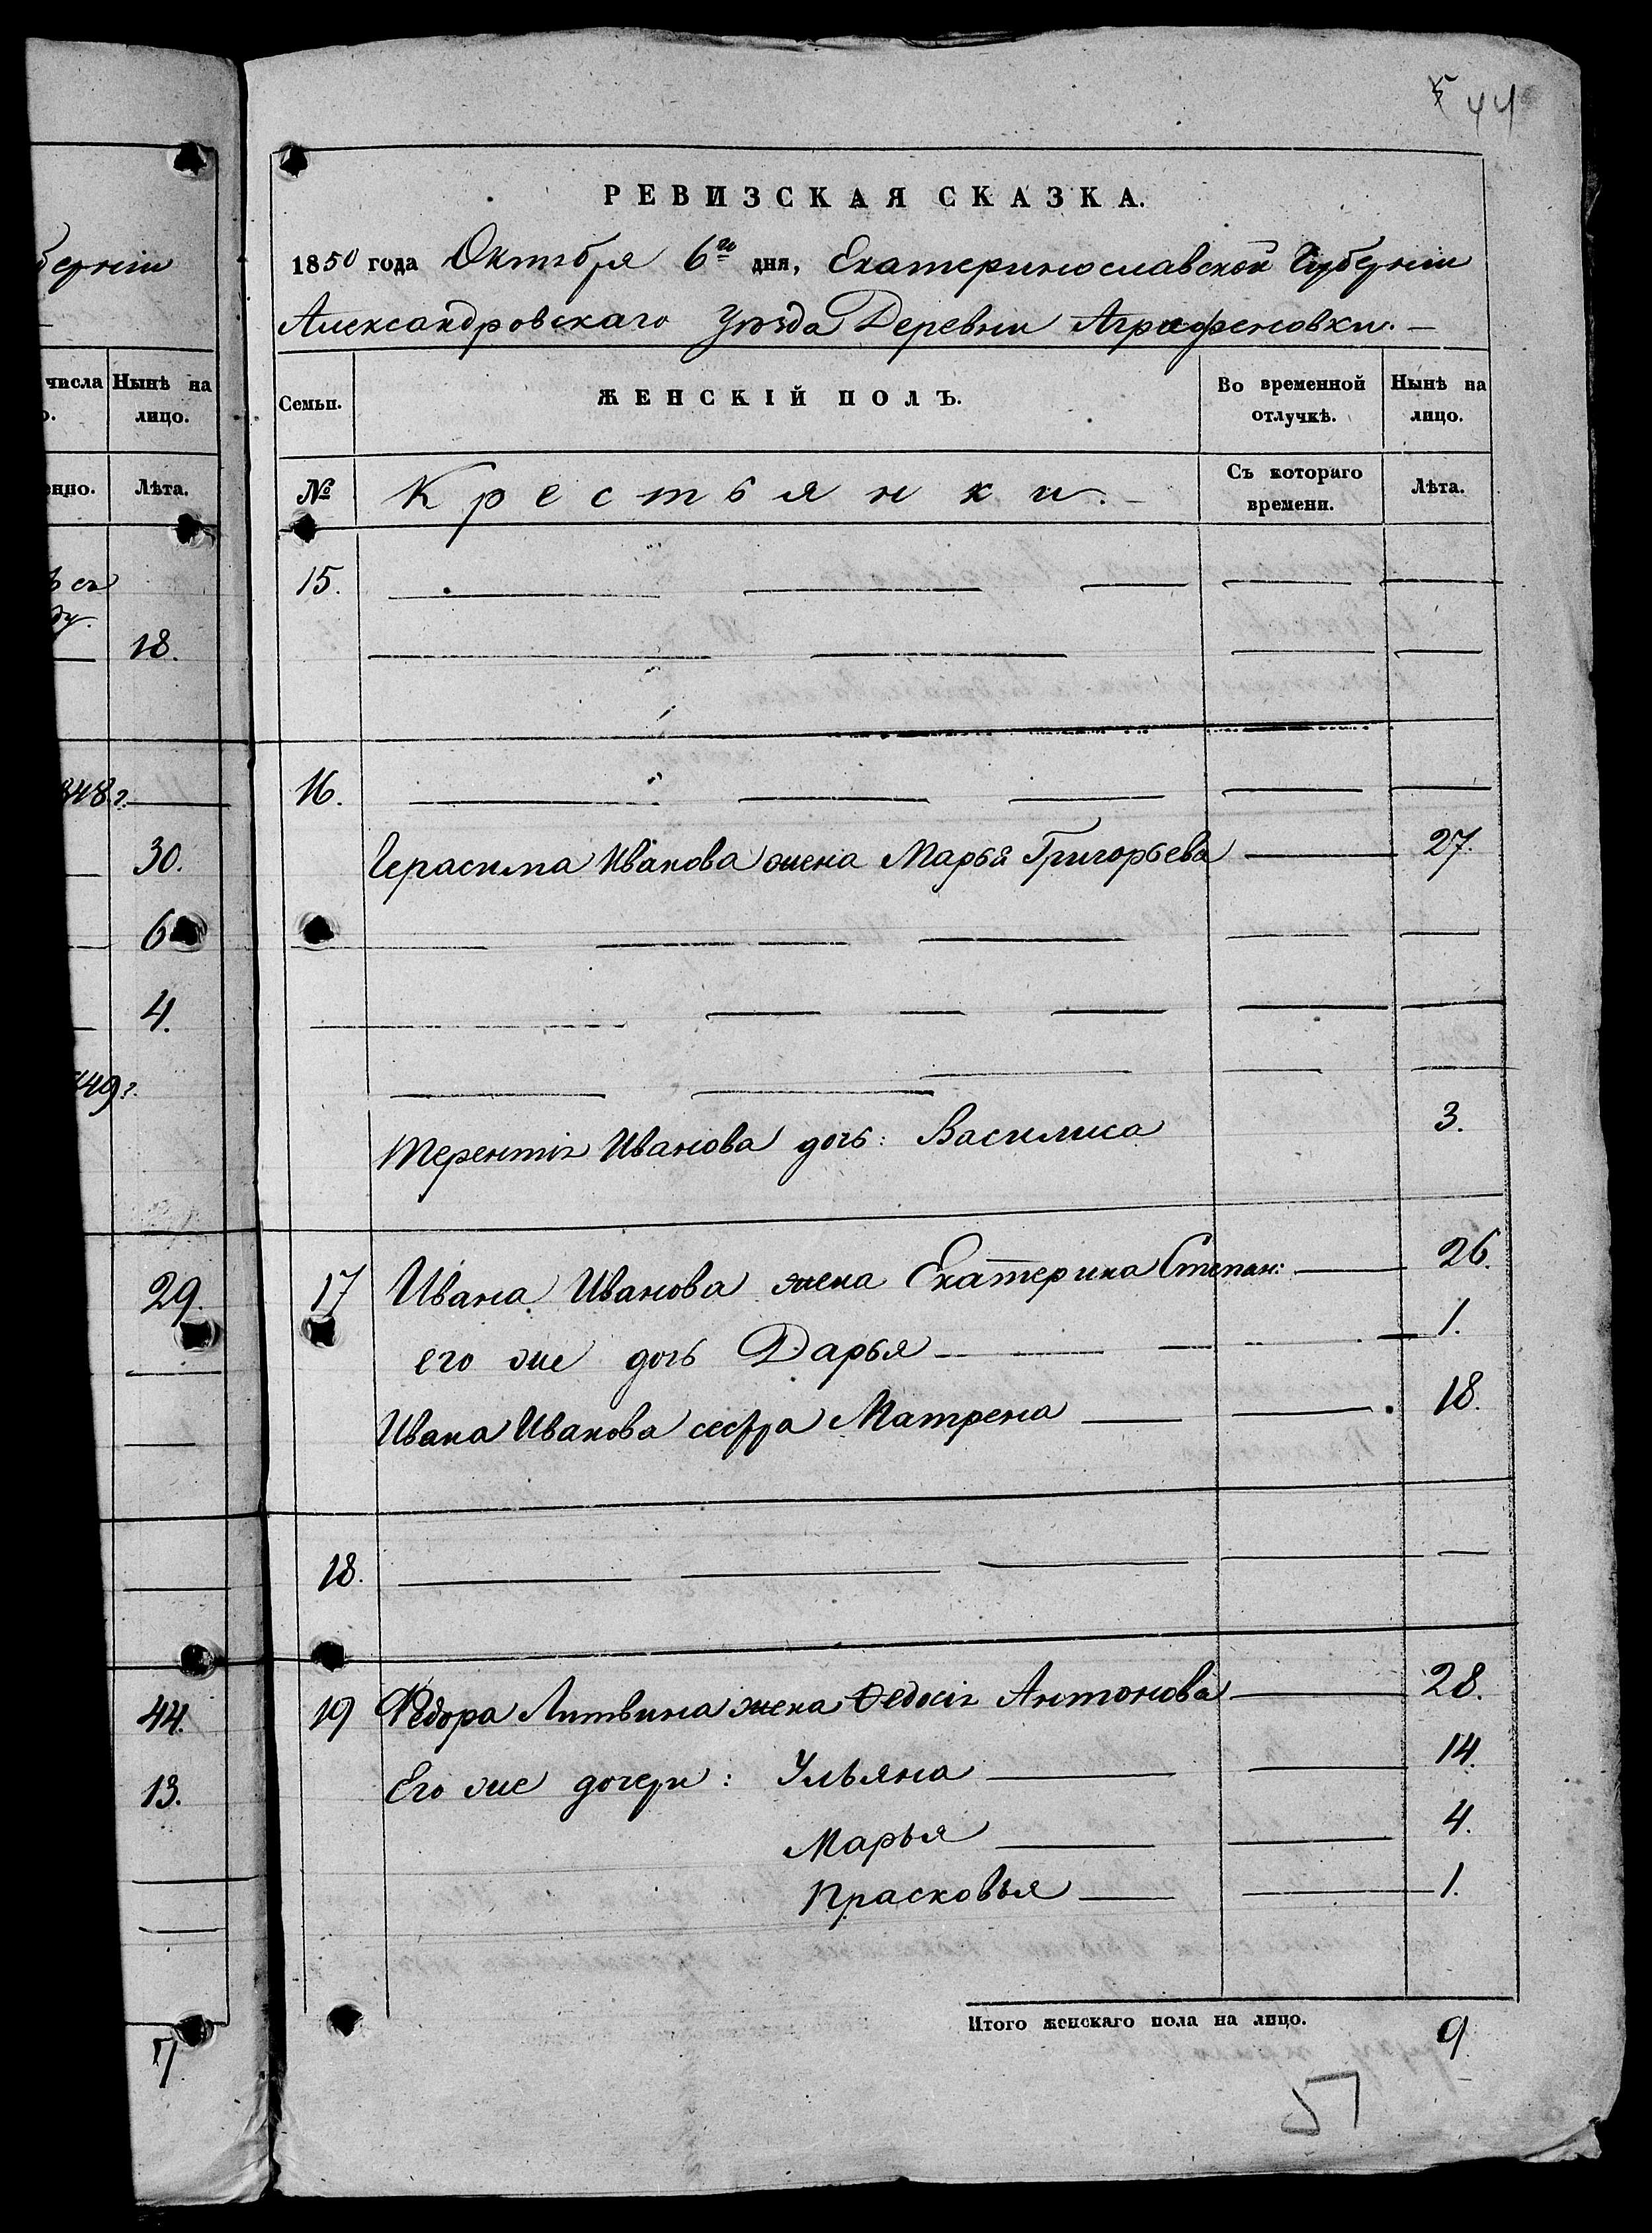 44
РЕВИЗСКАЯ СКАЗКА.
1850 года Октября 6го дня, Екатеринославской Губерніи
Александровскаго Уѣзда Деревни Аграфеновки. —
берніи
числа Нынѣ на лицо.
Лѣта.
Семьи. ЖЕНСКІЙ ПОЛЪ. Во временной отлучкѣ. Нынѣ на лицо.
№ Крестьянки. — Съ котораго времени. Лѣта.
ъ съ
18.
848 г.
30.
6
4.
849 г.
29.
44.
13.
7
15.
16.
Герасима Иванова жена Марья Григорьева 27.
Терентія Иванова дочь: Василиса 3.
17 Ивана Иванова жена Екатерина Степан: 26.
его же дочь Дарья 1.
Ивана Иванова сестра Матрена 18.
18.
19 Федора Литвина жена Ѳедосія Антонова 28.
Его же дочери: Ульяна 14.
Марья 4.
Прасковья 1.
Итого женскаго пола на лицо. 9
51